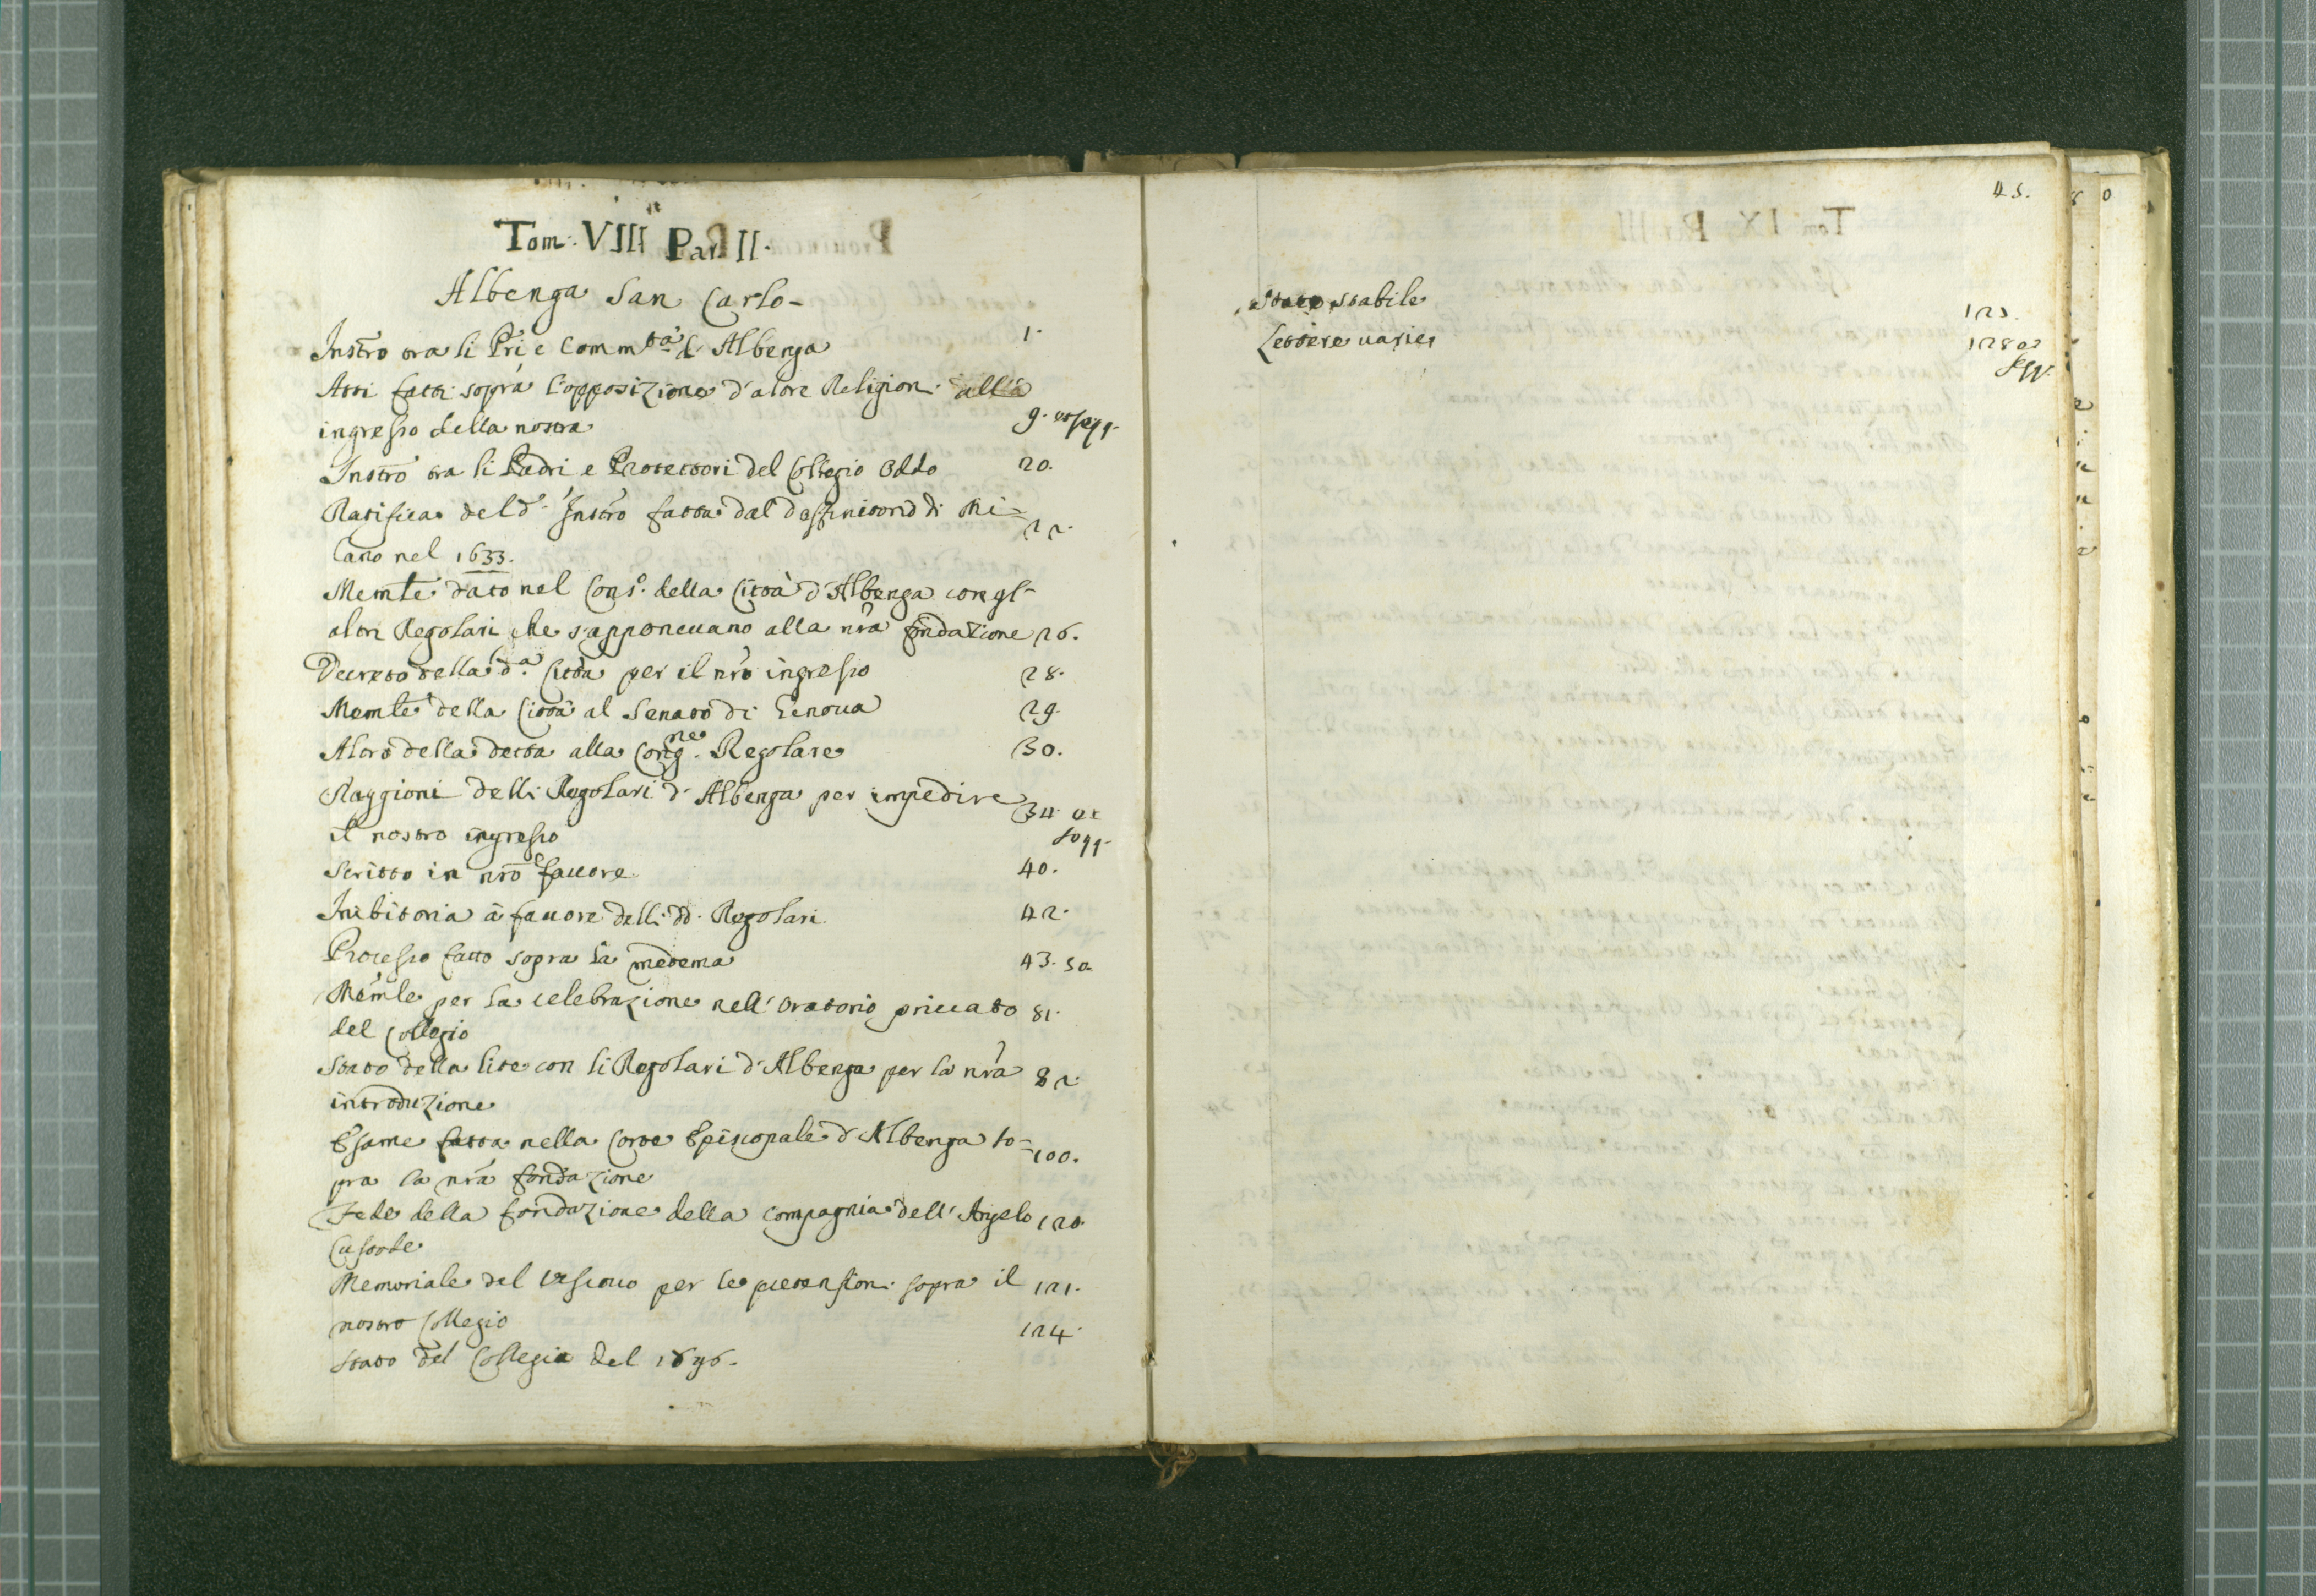 Tom. VIII Par. II.
Albenga San Carlo-
Instro tra li Pri e Commtà d'Albenga 1.
Atti fatti sopra l'opposizione d'altre Religioni alla
ingresso della nostra 9. et segg.
Instro tra li Padri e Protettori del Collegio Oddo 20.
Ratifica del d.º Instro fatta dal Deffinitorio di Mi=
lano nel 1633. 22.
Memle dato nel Cons.º della Città d'Albenga con gl'
altri Regolari che s'apponevano alla nra fondazione 26.
Decreto della d.ª Città per il nro ingresso 28.
Memle della Città al Senato di Genova 29.
Altro della detta alla Cong.ne Regolare 30.
Raggioni delli Regolari d'Albenga per impedire
il nostro ingresso 34. et segg.
Scritto in nro favore 40.
Inibitoria à favore delli dd. Regolari 42.
Processo fatto sopra la medema 43. 50.
Memle per la celebrazione nell'Oratorio privato 81.
del Collegio
Stato della lite con li Regolari d'Albenga per la nra 82.
introduzione
Esame fatta nella Corte Episcopale d'Albenga so=
pra la nra fondazione 100.
Fede della fondazione della Compagnia dell'Angelo 120.
Custode
Memoriale del Vescovo per le pretensioni sopra il 121.
nostro Collegio
Stato del Collegio del 1696. 124.
45.
Stato stabile 125.
Lettere varie 128 et
segg.